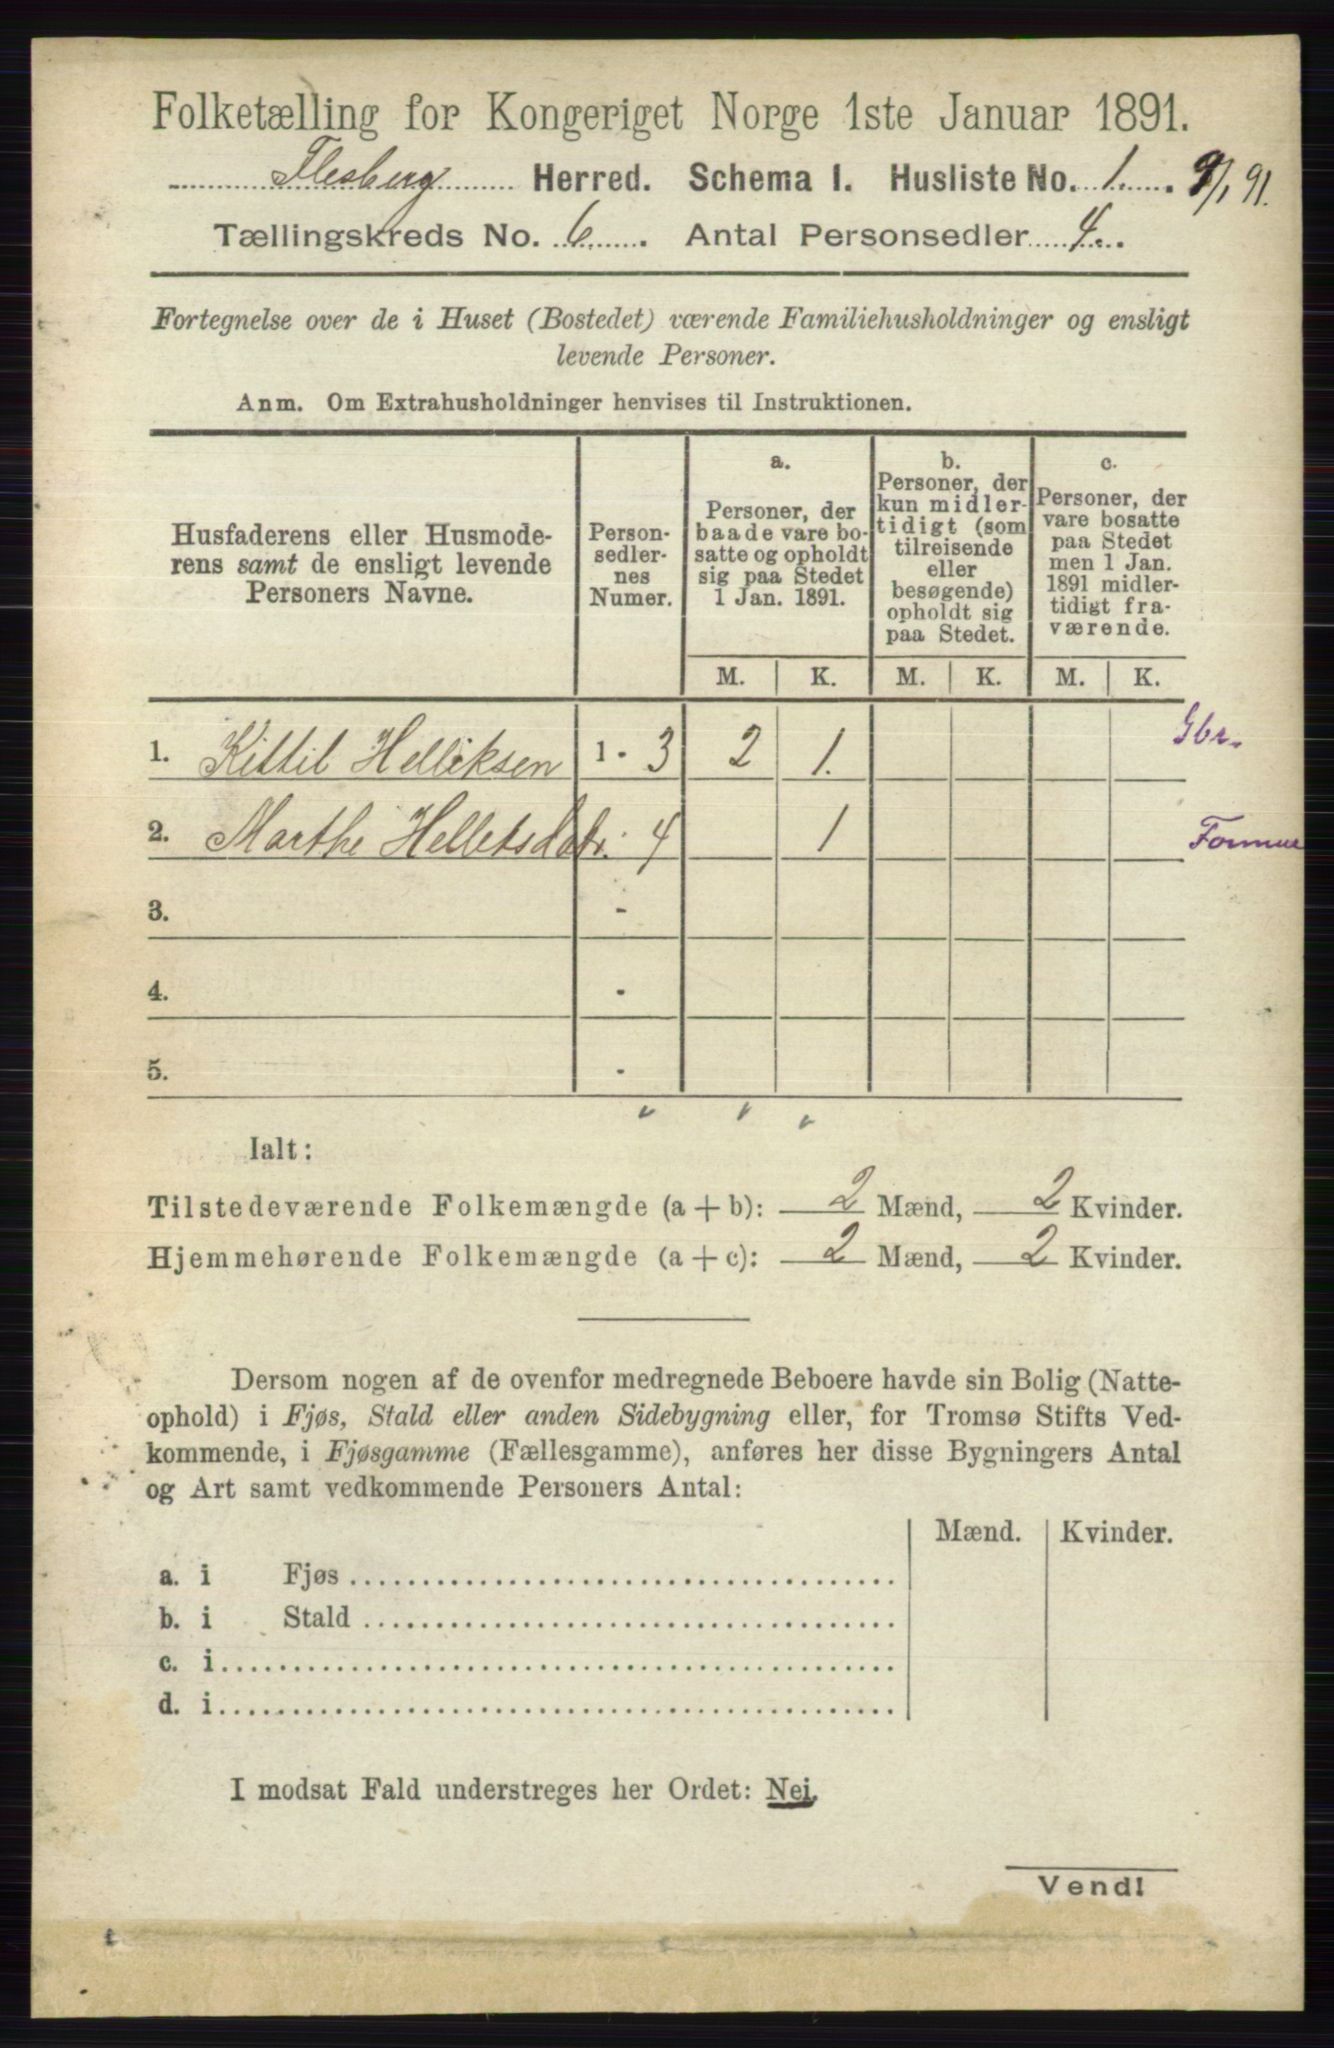 Folketælling for Kongeriget Norge 1ste Januar 1891.
Flesberg Herred. Schema I. Husliste No. 1. 9/1 91.
Tællingskreds No. 6. Antal Personsedler 4.
Fortegnelse over de i Huset (Bostedet) værende Familiehusholdninger og ensligt
levende Personer.
Anm. Om Extrahusholdninger henvises til Instruktionen.
Husfaderens eller Husmode-
rens samt de ensligt levende
Personers Navne.
Person-
sedler-
nes
Numer.
a.
Personer, der
baade vare bo-
satte og opholdt
sig paa Stedet
1 Jan. 1891.
b.
Personer, der
kun midler-
tidigt (som
tilreisende
eller
besøgende)
opholdt sig
paa Stedet.
c.
Personer, der
vare bosatte
paa Stedet
men 1 Jan.
1891 midler-
tidigt fra-
værende.
M. K. M. K. M. K.
1. Kittil Helliksen 1 - 3 2 1. Gbr.
2. Marthe Helleksdatr. - 4 1 Formue
3. -
4. -
5. -
Ialt:
Tilstedeværende Folkemængde (a + b): 2 Mænd, 2 Kvinder.
Hjemmehørende Folkemængde (a + c): 2 Mænd, 2 Kvinder.
Dersom nogen af de ovenfor medregnede Beboere havde sin Bolig (Natte-
ophold) i Fjøs, Stald eller anden Sidebygning eller, for Tromsø Stifts Ved-
kommende, i Fjøsgamme (Fællesgamme), anføres her disse Bygningers Antal
og Art samt vedkommende Personers Antal:
Mænd. Kvinder.
a. i Fjøs
b. i Stald
c. i
d. i
I modsat Fald understreges her Ordet: Nei.
Vend!